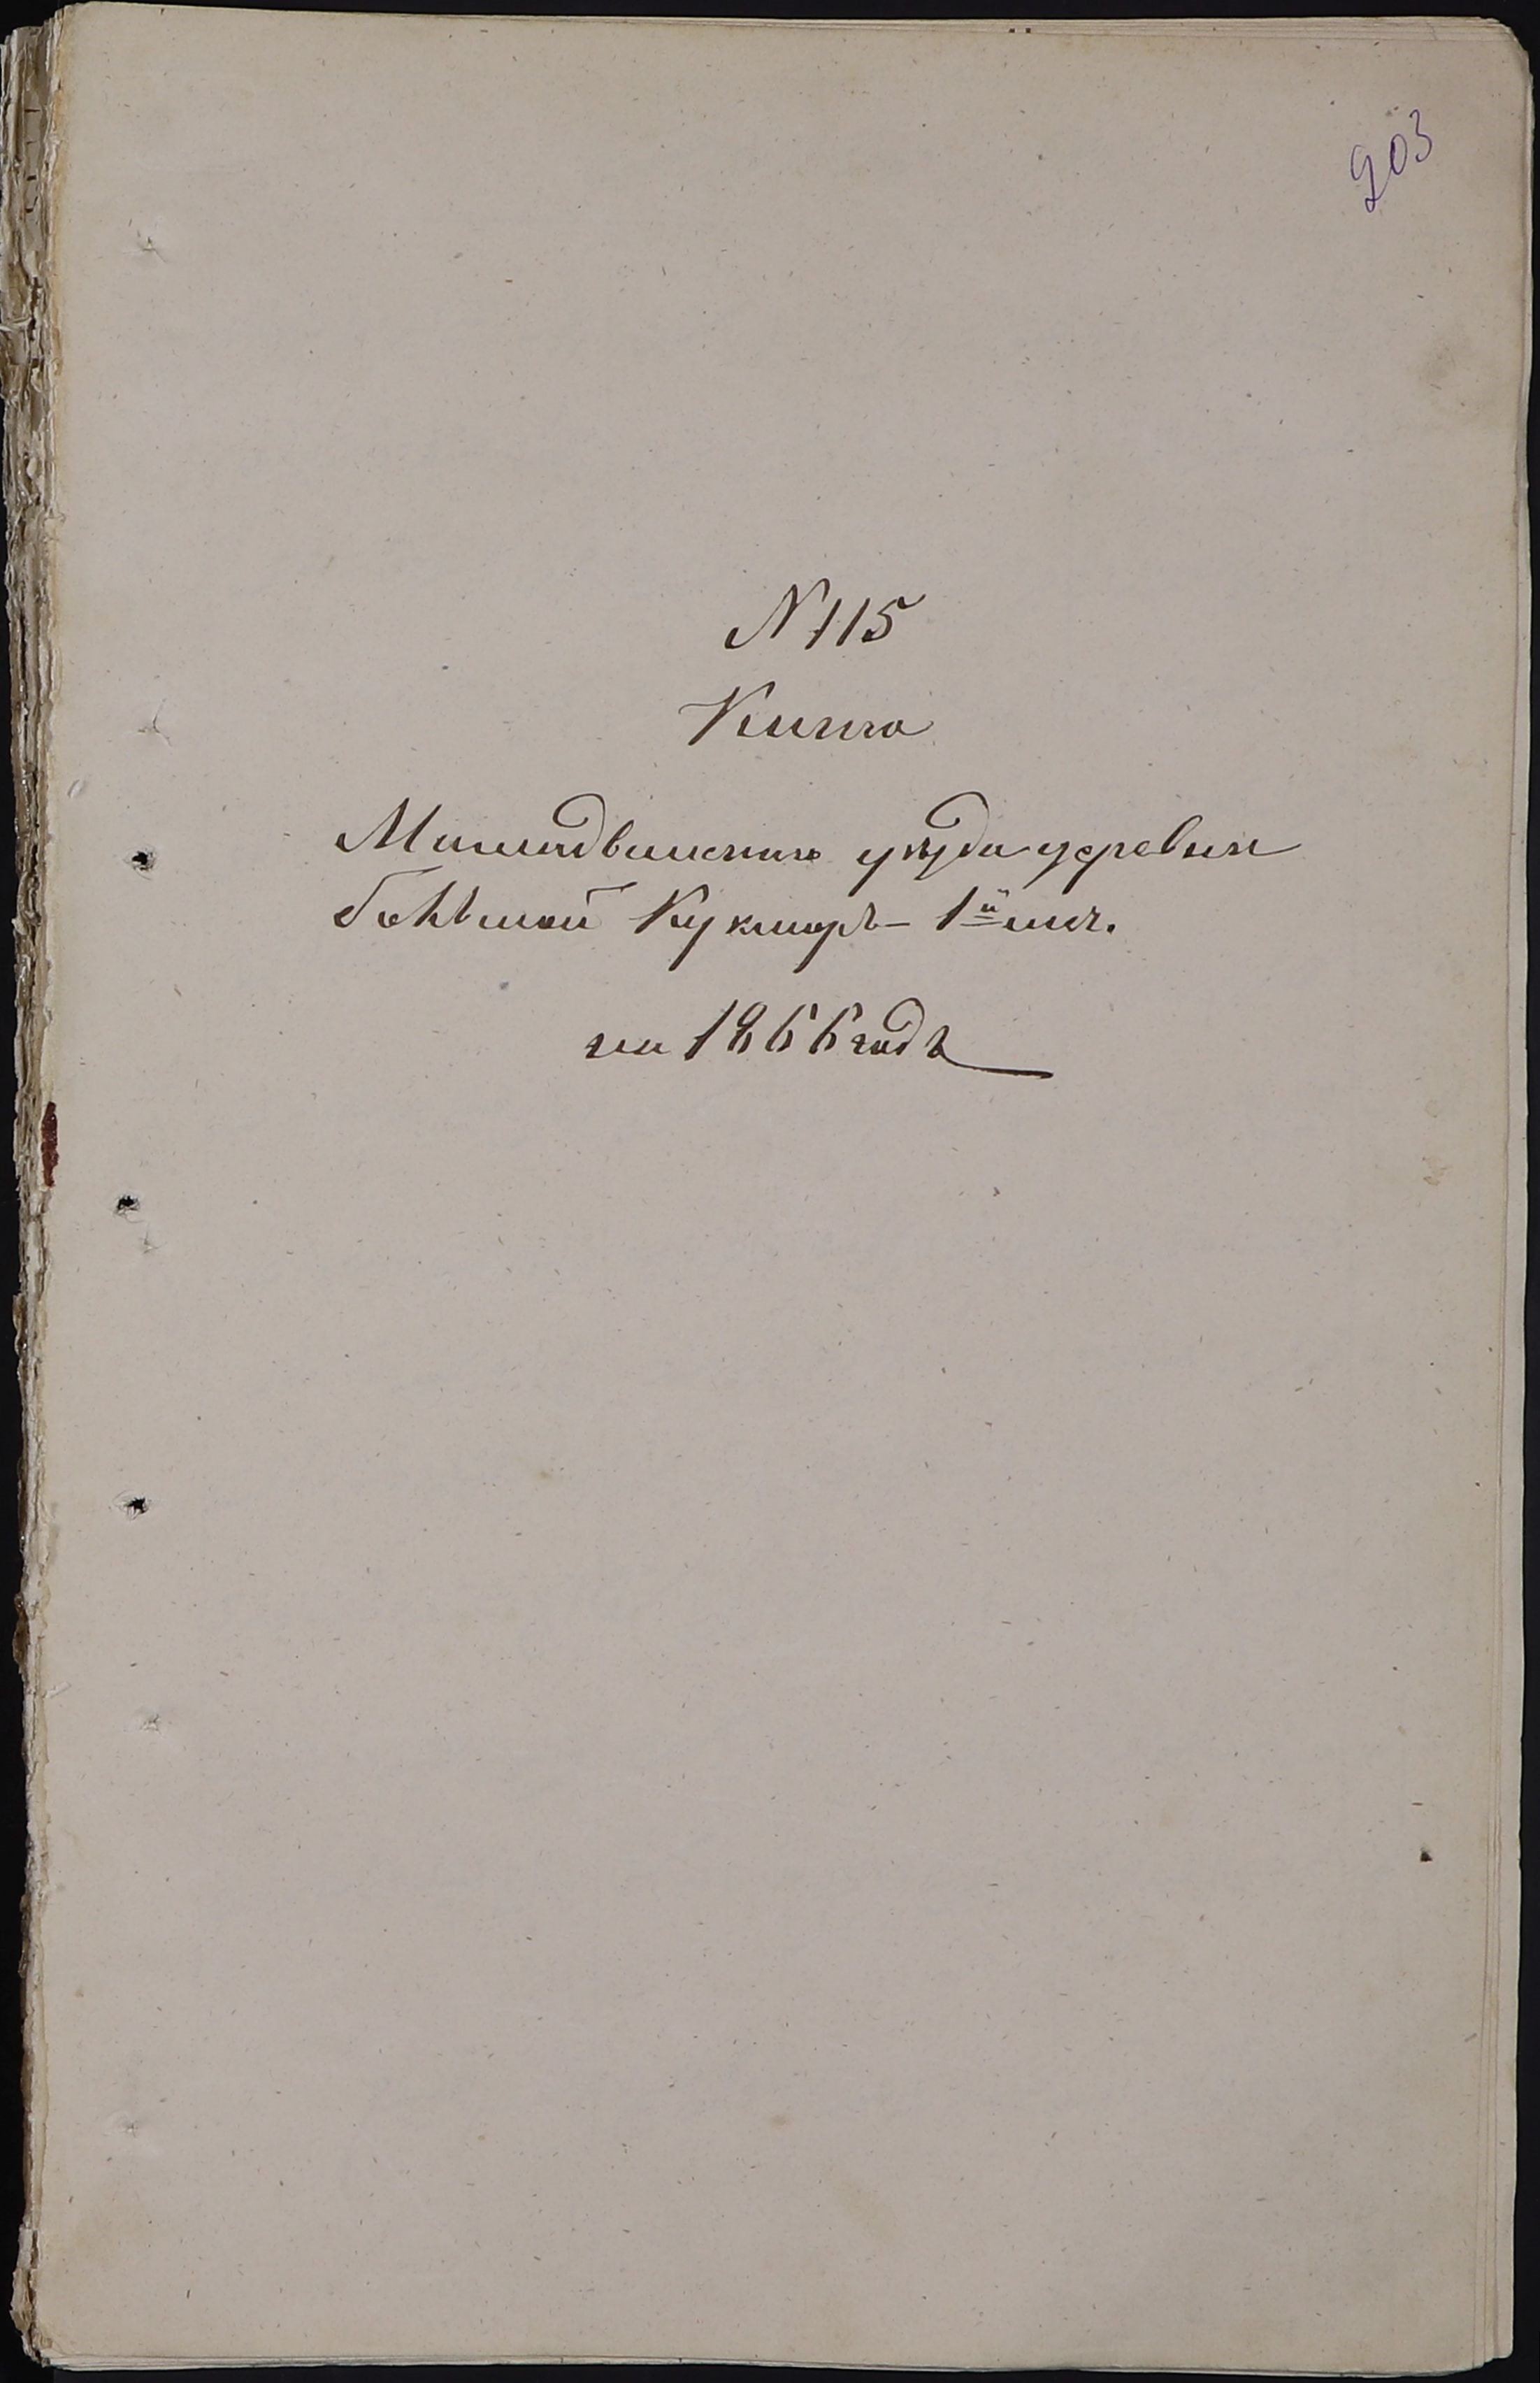 203
№ 115
Книга
Мамадышскаго уѣзда деревни
большой Кукморъ – 1й меч.
на 1866 годъ